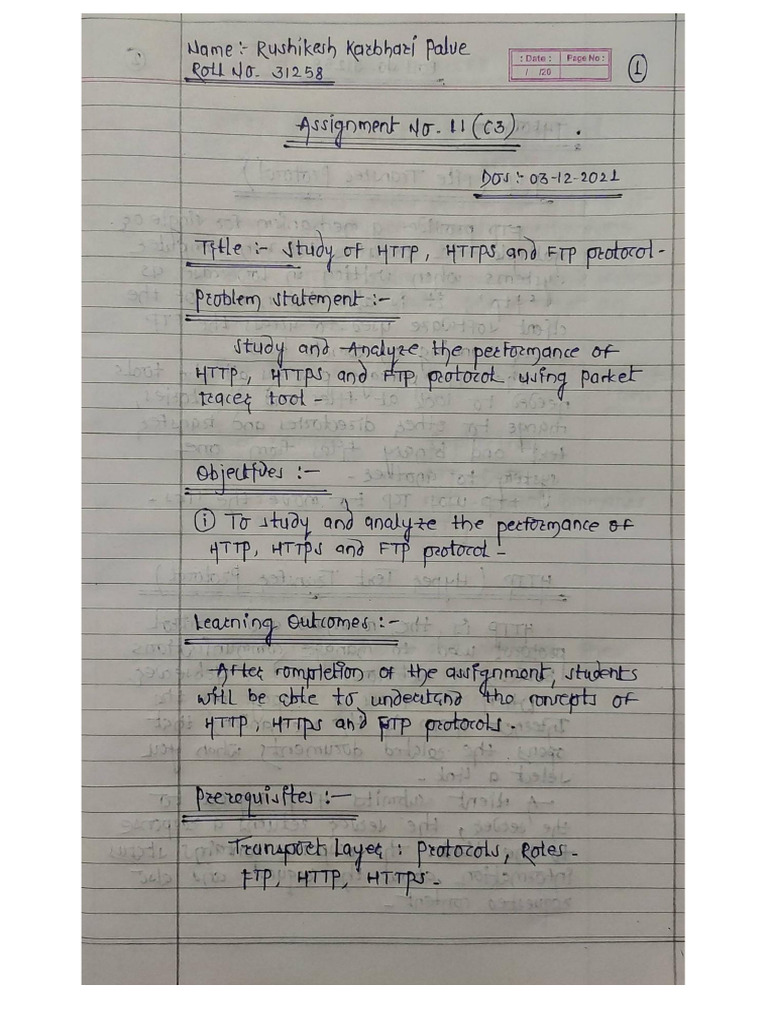 Name :- Rushikesh Karbhari Palve
Roll No. 31258
: Date : Page No :
/ /20
1
Assignment No. 11 (C3)
DOS :- 03-12-2021
Title :- Study of HTTP, HTTPS and FTP protocol -
Problem statement :-
Study and Analyze the performance of
HTTP, HTTPS and FTP protocol using Packet
tracer tool -
Objectives :-
i To study and analyze the performance of
HTTP, HTTPS and FTP protocol -
Learning Outcomes :-
After completion of the assignment, students
will be able to understand the concepts of
HTTP, HTTPS and FTP protocols.
Prerequisites :-
Transport Layer : Protocols, Roles -
FTP, HTTP, HTTPS -